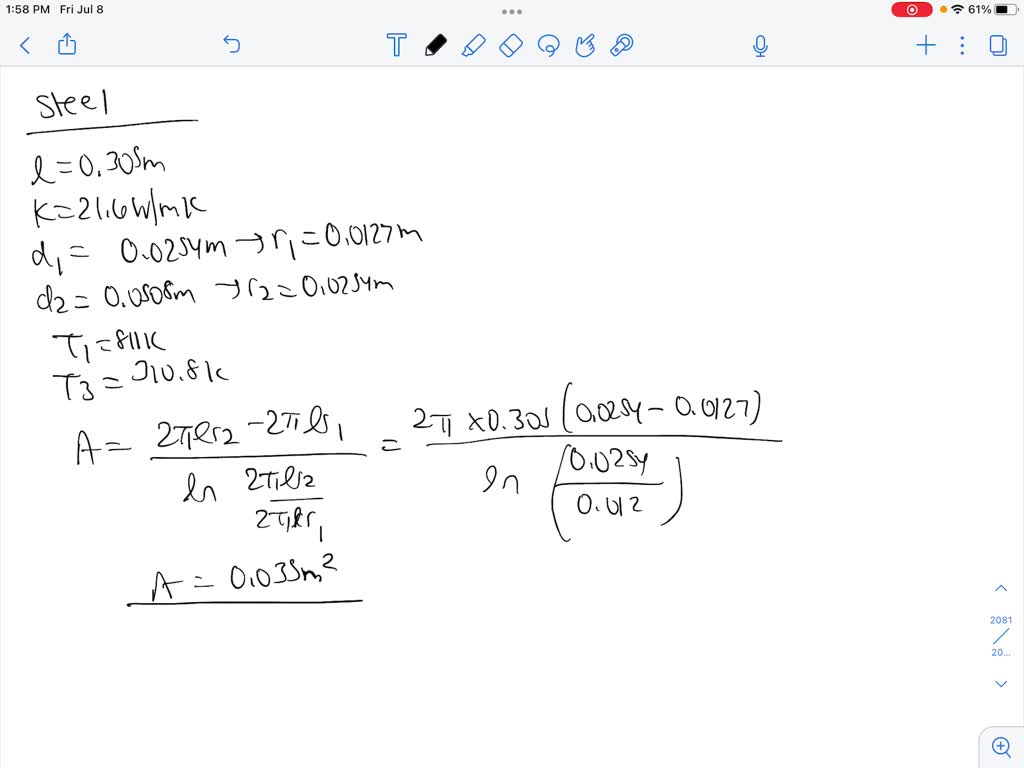 1:58 PM Fri Jul 8
61%
T
Steel
l = 0.305m
K = 21.6W/mK
d₁ = 0.0254m → r₁ = 0.0127m
d₂ = 0.0508m → r₂ = 0.0254m
T₁ = 811K
T₃ = 310.8K
A = (2πlr₂ - 2πlr₁) / (ln 2πlr₂/2πlr₁) = 2π × 0.305 (0.0254 - 0.0127) / ln (0.0254/0.012)
A = 0.035m²
2081
20...